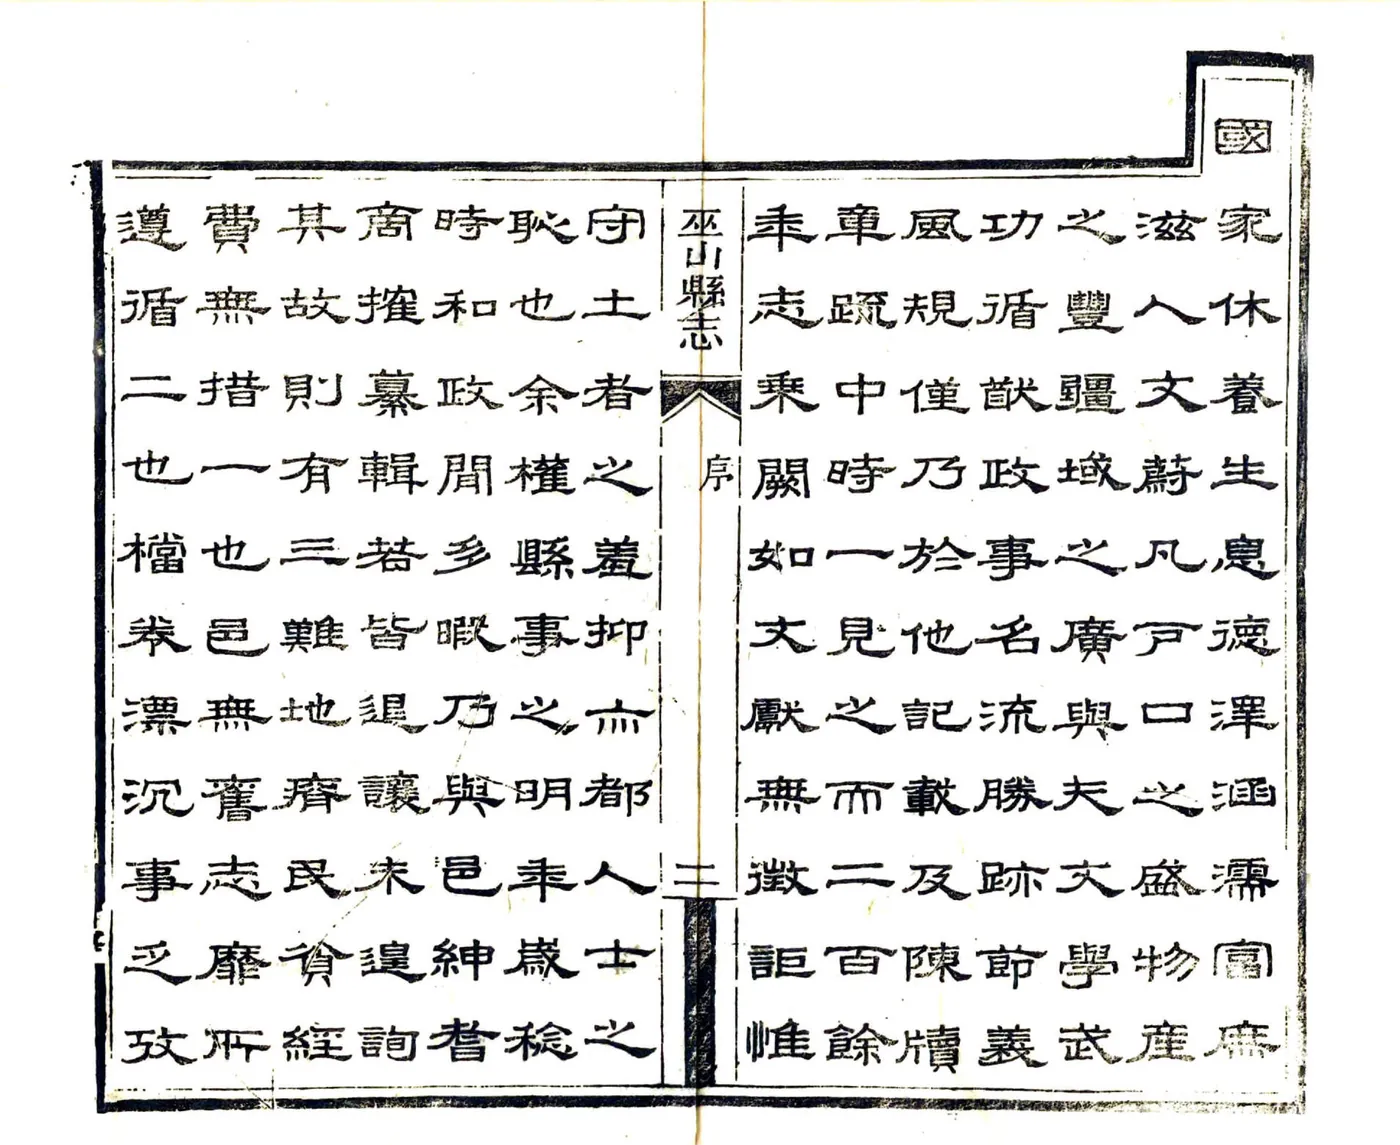 國家休養生息德澤涵濡富庶
滋人文蔚凡戶口之盛物產
之豐疆域之廣與夫文學武
功循猷政事名流勝跡節義
風規僅乃於他記載及陳牘
章疏中時一見之而二百餘
年志乘闕如文獻無徵詎惟
巫山縣志
序
二
守土者之羞抑亦都人士之
恥也余權縣事之明年歲稔
時和政閒多暇乃與邑紳耆
商搉纂輯若皆退讓未遑詢
其故則有三難地瘠民貧經
費無措一也邑無舊志靡所
遵循二也檔卷漂沉事乏攷